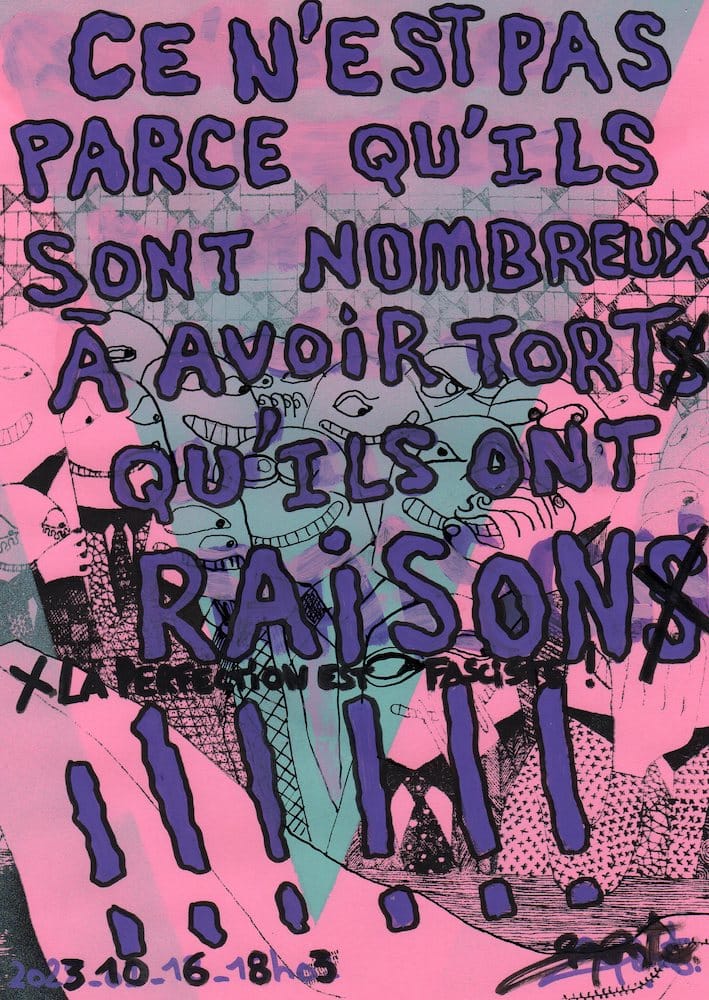 CE N'EST PAS
PARCE QU'ILS
SONT NOMBREUX
À AVOIR TORTS
QU'ILS ONT
RAISONS
X LA PERFECTION EST FASCISTE !
! ! ! ! ! !
2023_10_16_18h03